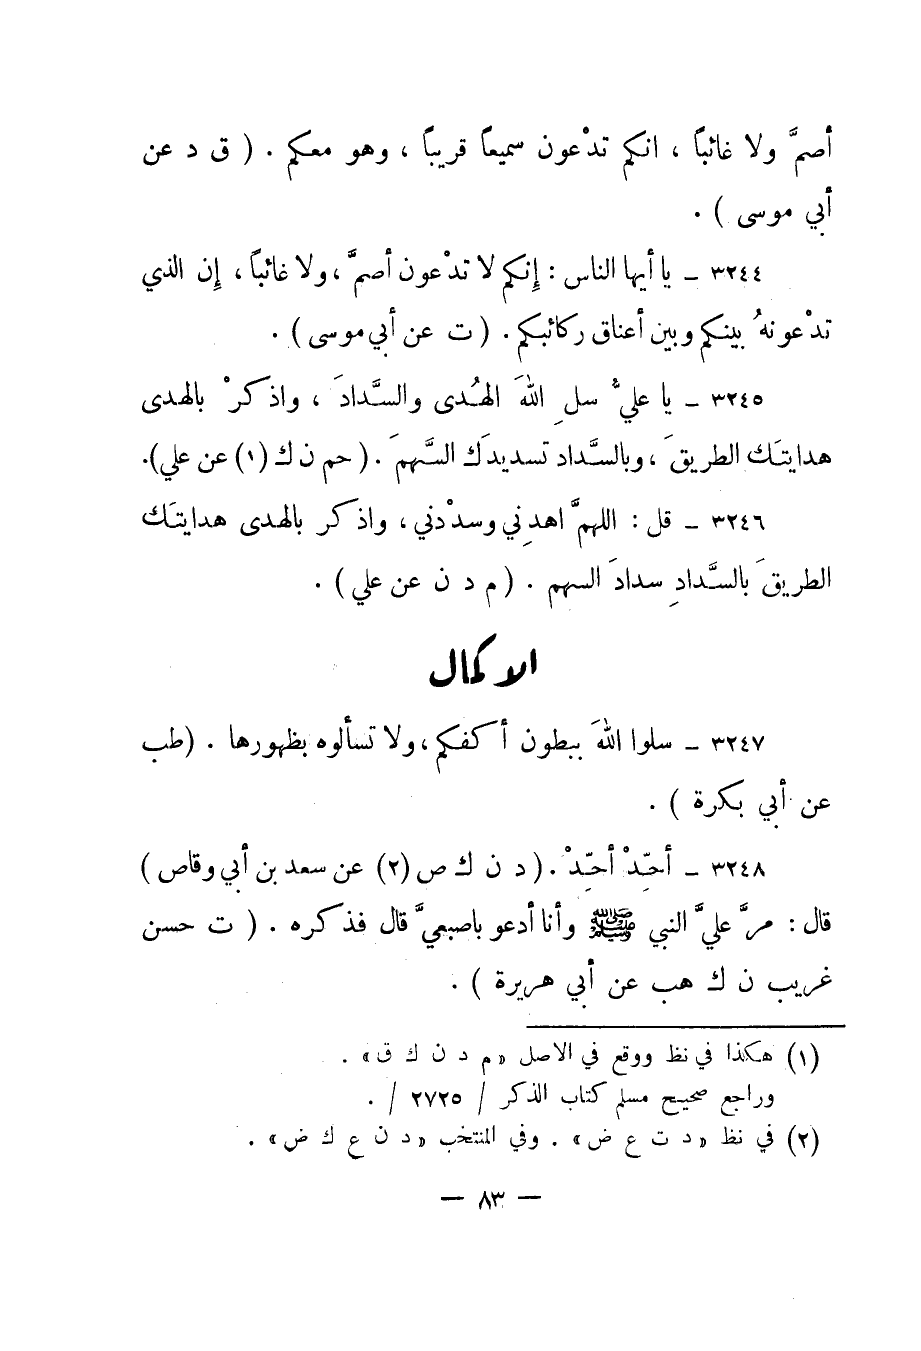 أصمَّ ولا غائباً ، انكم تدْعون سميعاً قريباً ، وهو معكم . ( ق د عن
أبي موسى ) .
٣٢٤٤ ـ يا أيها الناس : إِنكم لا تدْعون أصمَّ ، ولا غائباً ، إِن الذي
تدْعونهُ بينكم وبين أعناق ركائبكم . ( ت عن أبي موسى ) .
٣٢٤٥ ـ يا عليُّ سلِ اللهَ الهُدى والسَّدادَ ، واذكرْ بالهدى
هدايتَك الطريقَ ، وبالسَّداد تسديدَك السَّهمَ . ( حم ن ك (١) عن علي ).
٣٢٤٦ ـ قل : اللهمَّ اهدِني وسدْدني ، واذكر بالهدى هدايتَك
الطريقَ بالسَّدادِ سدادَ السهمِ . ( م د ن عن علي ) .
الاكمال
٣٢٤٧ ـ سلوا اللهَ ببطون أكفكم ، ولا تسألوه بظهورها . ( طب
عن أبي بكرة ) .
٣٢٤٨ ـ أحِّدْ أحِّدْ . ( د ن ك ص (٢) عن سعد بن أبي وقاص )
قال : مرَّ عليَّ النبي ﷺ وأنا أدعو باصبعيَّ قال فذكره . ( ت حسن
غريب ن ك هب عن أبي هريرة ) .
(١) هكذا في نظ ووقع في الاصل « م د ن ك ق » .
وراجع صحيح مسلم كتاب الذكر / ٢٧٢٥ / .
(٢) في نظ « د ت ع ض » . وفي المنتخب « د ن ع ك ض » .
— ٨٣ —